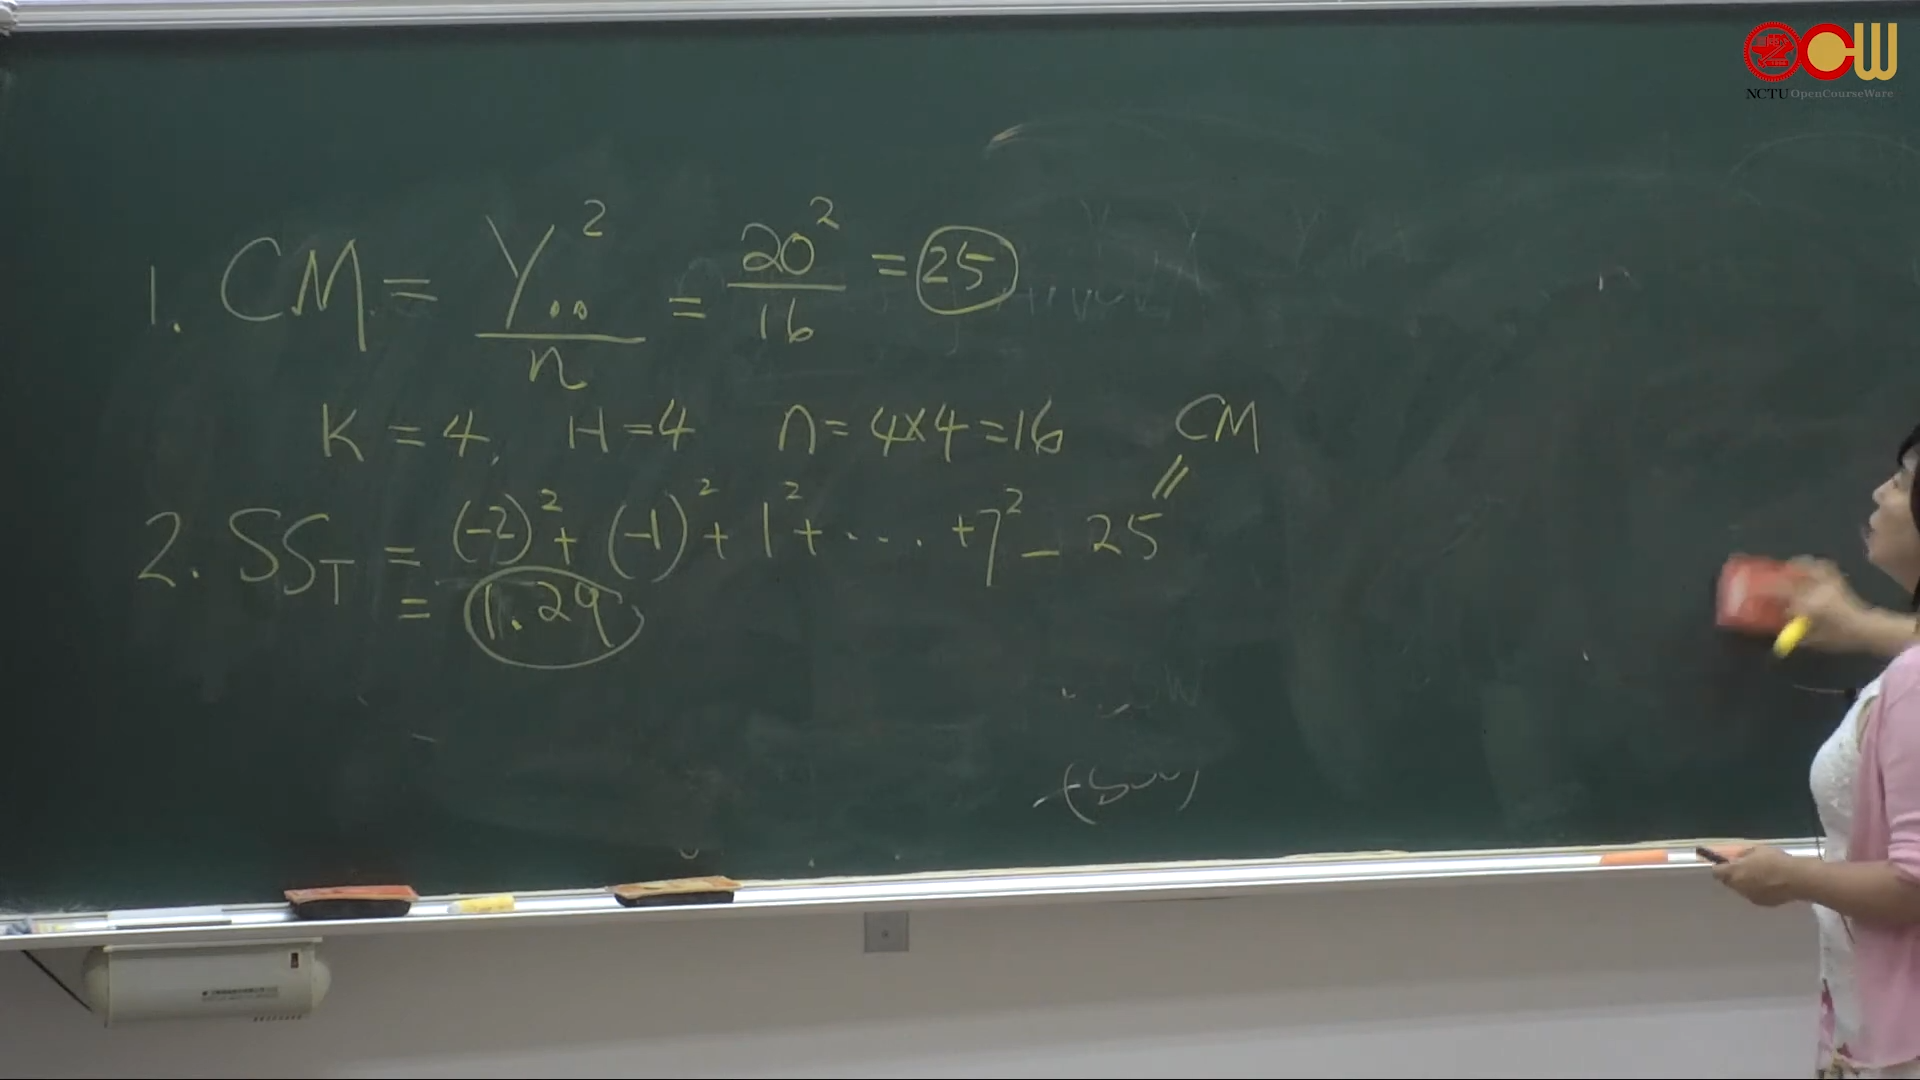 CW
NCTU OpenCourseWare
1. CM = Y..² / n = 20² / 16 = 25
K = 4, H = 4 n = 4×4 = 16 CM
2. SS_T = (-2)² + (-1)² + 1² + .... + 7² - 25
= 1.29